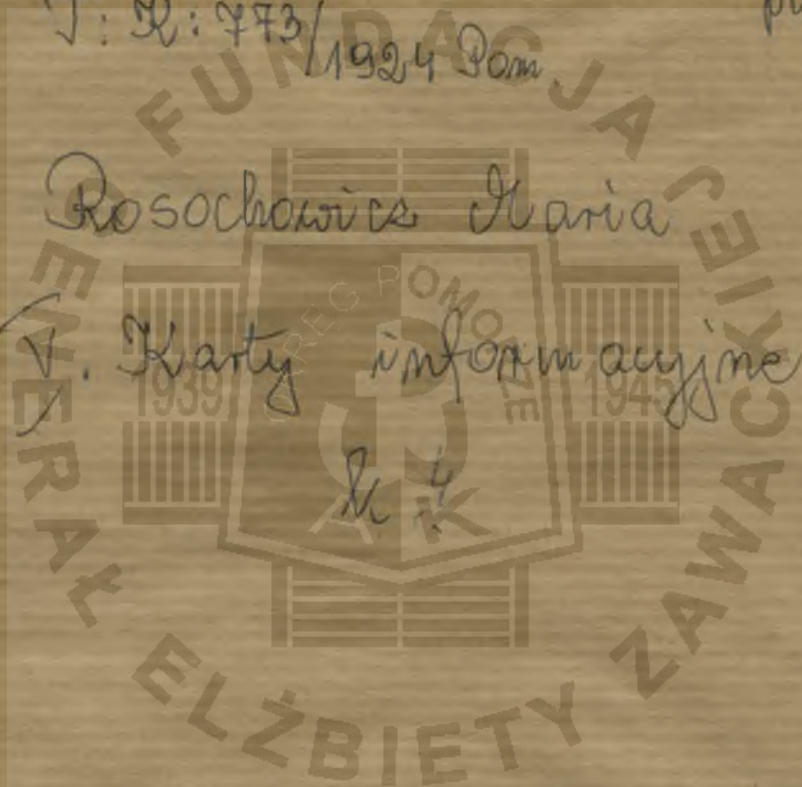 T: K: 773/1924 Pom.
Rosochowicz Maria
V. Karty informacyjne
k. 4
FUNDACJA GENERAŁ ELŻBIETY ZAWACKIEJ
OKRĘG POMORZE
1939
1945
A K